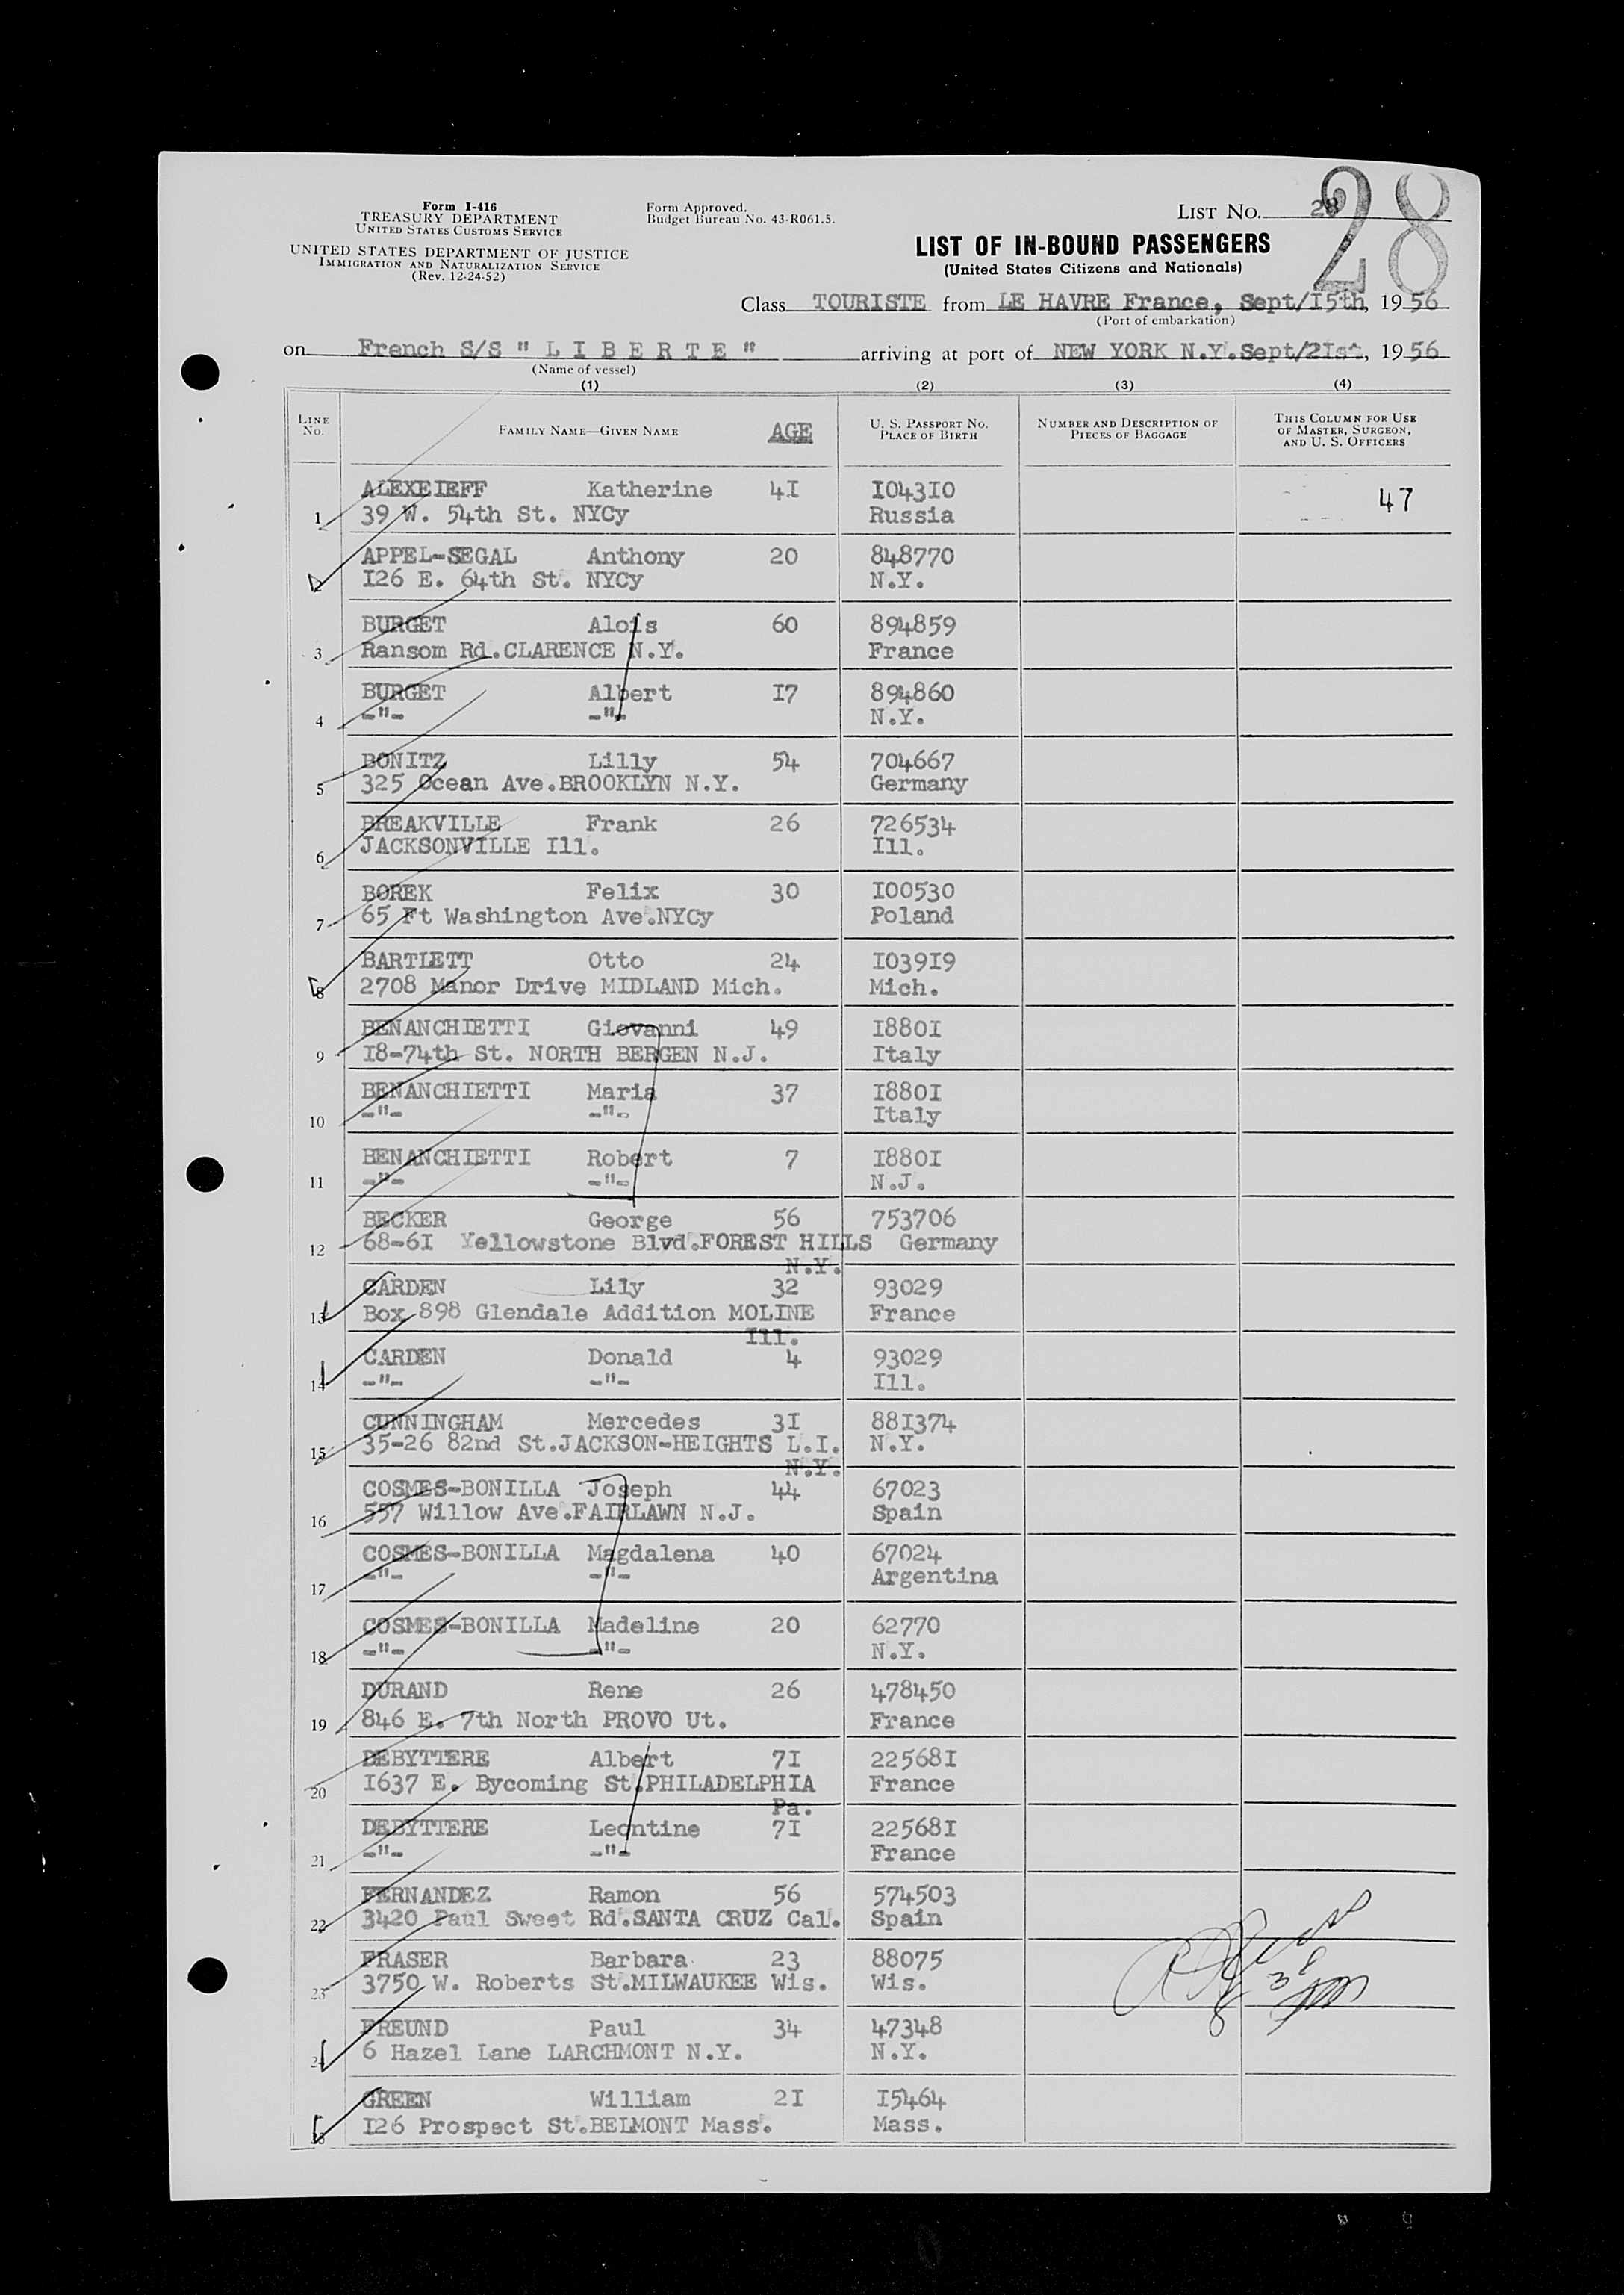 28
Form I-416
TREASURY DEPARTMENT
UNITED STATES CUSTOMS SERVICE
UNITED STATES DEPARTMENT OF JUSTICE
IMMIGRATION AND NATURALIZATION SERVICE
(Rev. 12-24-52)
Form Approved.
Budget Bureau No. 43-R061.5.
LIST NO. 28
LIST OF IN-BOUND PASSENGERS
(United States Citizens and Nationals)
Class TOURISTE from LE HAVRE France, Sept/I5th, 1956
(Port of embarkation)
on French S/S " L I B E R T E " arriving at port of NEW YORK N.Y. Sept/2Ist, 1956
(Name of vessel)
(1) (2) (3) (4)
LINE No. FAMILY NAME—GIVEN NAME AGE U. S. PASSPORT NO. PLACE OF BIRTH NUMBER AND DESCRIPTION OF PIECES OF BAGGAGE THIS COLUMN FOR USE OF MASTER, SURGEON, AND U. S. OFFICERS
ALEXEIEFF Katherine 4I I043I0 47
1 39 W. 54th St. NYCy Russia
APPEL-SEGAL Anthony 20 848770
2 I26 E. 64th St. NYCy N.Y.
BURGET Alois 60 894859
3 Ransom Rd.CLARENCE N.Y. France
BURGET Albert I7 894860
4 -"- -"- N.Y.
BONITZ Lilly 54 704667
5 325 Ocean Ave.BROOKLYN N.Y. Germany
BREAKVILLE Frank 26 726534
6 JACKSONVILLE Ill. Ill.
BOREK Felix 30 I00530
7 65 Ft Washington Ave.NYCy Poland
BARTLETT Otto 24 I039I9
8 2708 Manor Drive MIDLAND Mich. Mich.
BENANCHIETTI Giovanni 49 I880I
9 I8-74th St. NORTH BERGEN N.J. Italy
BENANCHIETTI Maria 37 I880I
10 -"- -"- Italy
BENANCHIETTI Robert 7 I880I
11 -"- -"- N.J.
BECKER George 56 753706
12 68-6I Yellowstone Blvd.FOREST HILLS Germany
N.Y.
CARDEN Lily 32 93029
13 Box 898 Glendale Addition MOLINE France
Ill.
CARDEN Donald 4 93029
14 -"- -"- Ill.
CUNNINGHAM Mercedes 3I 88I374
15 35-26 82nd St.JACKSON-HEIGHTS L.I. N.Y.
N.Y.
COSMES-BONILLA Joseph 44 67023
16 557 Willow Ave.FAIRLAWN N.J. Spain
COSMES-BONILLA Magdalena 40 67024
17 -"- -"- Argentina
COSMES-BONILLA Madeline 20 62770
18 -"- -"- N.Y.
DURAND Rene 26 478450
19 846 E. 7th North PROVO Ut. France
DEBYTTERE Albert 7I 22568I
20 I637 E. Bycoming St.PHILADELPHIA France
Pa.
DEBYTTERE Leontine 7I 22568I
21 -"- -"- France
FERNANDEZ Ramon 56 574503
22 3420 Paul Sweet Rd.SANTA CRUZ Cal. Spain
FRASER Barbara 23 88075
23 3750 W. Roberts St.MILWAUKEE Wis. Wis.
FREUND Paul 34 47348
24 6 Hazel Lane LARCHMONT N.Y. N.Y.
GREEN William 2I I5464
I26 Prospect St.BELMONT Mass. Mass.